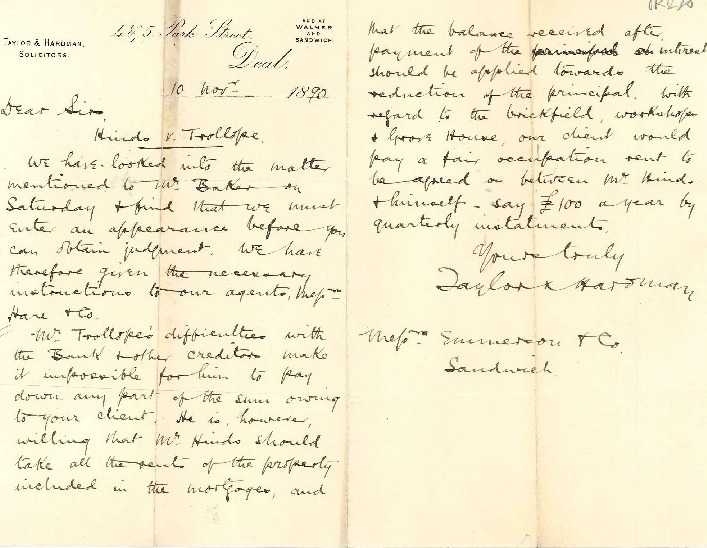 TAYLOR & HARDMAN,
SOLICITORS.
4 & 5, Park Street,
Deal,
AND AT
WALMER
AND
SANDWICH.
10 Novr 1890
Dear Sir,
Hinds v. Trollope.
We have looked into the matter
mentioned to Mr. Baker on
Saturday & find that we must
enter an appearance before you
can obtain judgment. We have
therefore given the necessary
instructions to our agents, Messrs
Hare & Co.
Mr. Trollope's difficulties with
the Bank & other creditors make
it impossible for him to pay
down any part of the sum owing
to your client. He is, however,
willing that Mr. Hinds should
take all the rents of the property
included in the mortgages, and
that the balance received after
payment of the principal on interest
should be applied towards the
reduction of the principal. With
regard to the brickfield, workshops
& Grove House, our client would
pay a fair occupation rent to
be agreed on between Mr. Hinds
& himself - say £100 a year by
quarterly instalments.
Yours truly
Taylor & Hardman
Messrs Emmerson & Co.
Sandwich.